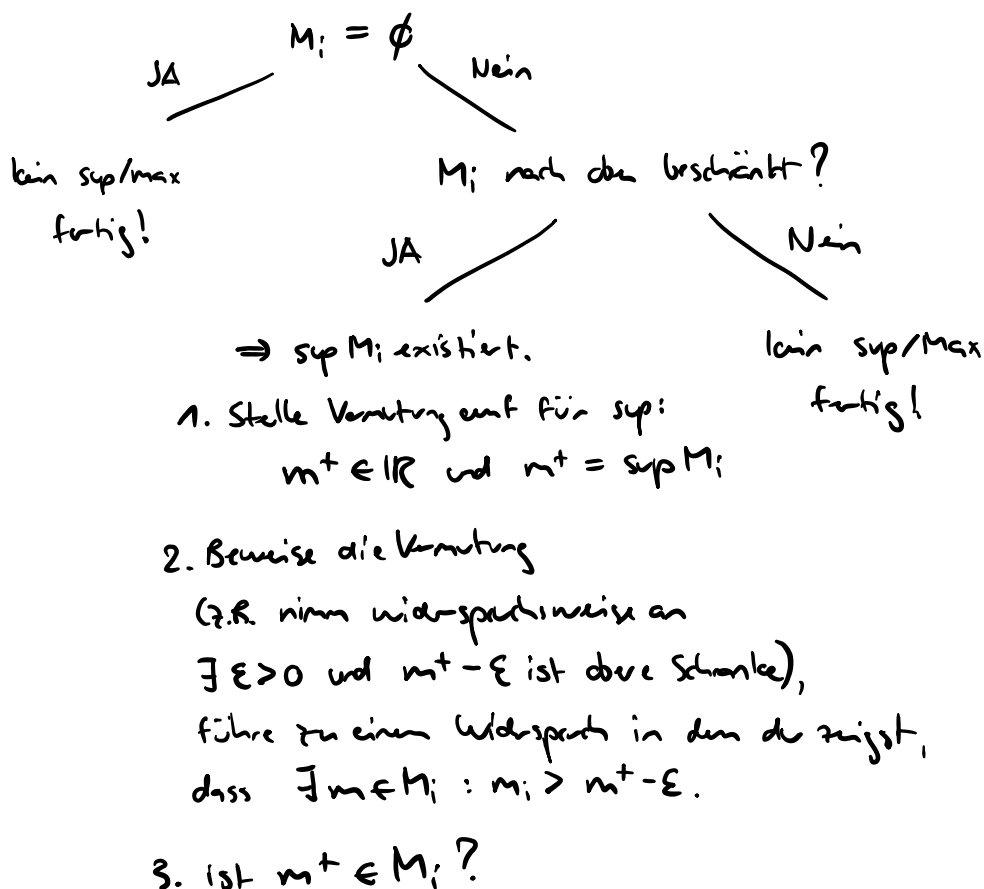 Mᵢ = ∅
JA
Nein
kein sup/max
fertig!
Mᵢ nach oben beschränkt?
JA
Nein
⇒ sup Mᵢ existiert.
kein sup/Max
fertig!
1. Stelle Vermutung auf für sup:
m⁺ ∈ ℝ und m⁺ = sup Mᵢ
2. Beweise die Vermutung
(z.B. nimm widerspruchsweise an
∃ ε>0 und m⁺ - ε ist obere Schranke),
führe zu einem Widerspruch in dem du zeigst,
dass ∃ m ∈ Mᵢ : mᵢ > m⁺ - ε.
3. ist m⁺ ∈ Mᵢ ?